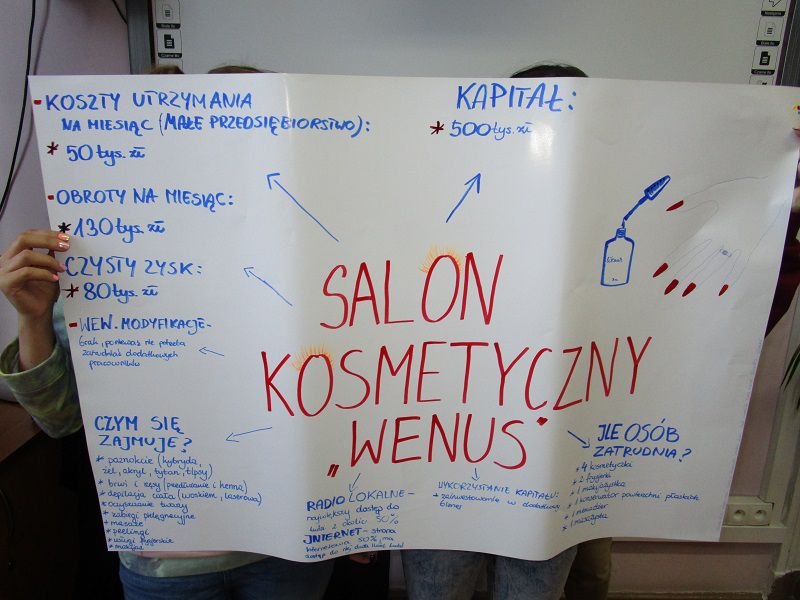 - KOSZTY UTRZYMANIA
NA MIESIĄC (MAŁE PRZEDSIĘBIORSTWO):
* 50 tys. zł
- OBROTY NA MIESIĄC:
* 130 tys. zł
CZYSTY ZYSK:
* 80 tys. zł
- WEW. MODYFIKACJE-
brak, ponieważ nie potrzeba
zatrudniać dodatkowych
pracowników
KAPITAŁ:
* 500 tys. zł
SALON
KOSMETYCZNY
„WENUS"
CZYM SIĘ
ZAJMUJE?
* paznokcie (hybryda,
żel, akryl, tytan, tipsy)
* brwi i rzęsy (przedłużanie i henna)
* depilacja ciała (woskiem, laserowa)
* oczyszczanie twarzy
* zabiegi pielęgnacyjne
* masaże
* peelingi
* usługi fryzjerskie
* makijaż
RADIO LOKALNE -
największy dostęp do
ludzi z okolic 50%
INTERNET - strona
internetowa 50%, ma
dostęp do niej duża ilość ludzi
WYKORZYSTANIE KAPITAŁU:
* zainwestowanie w dodatkowy
biznes
ILE OSÓB
ZATRUDNIA?
* 4 kosmetyczki
* 2 fryzjerki
* 1 makijażystka
* 1 konserwator powierzchni płaskich
* 1 menadżer
* 1 masażystka